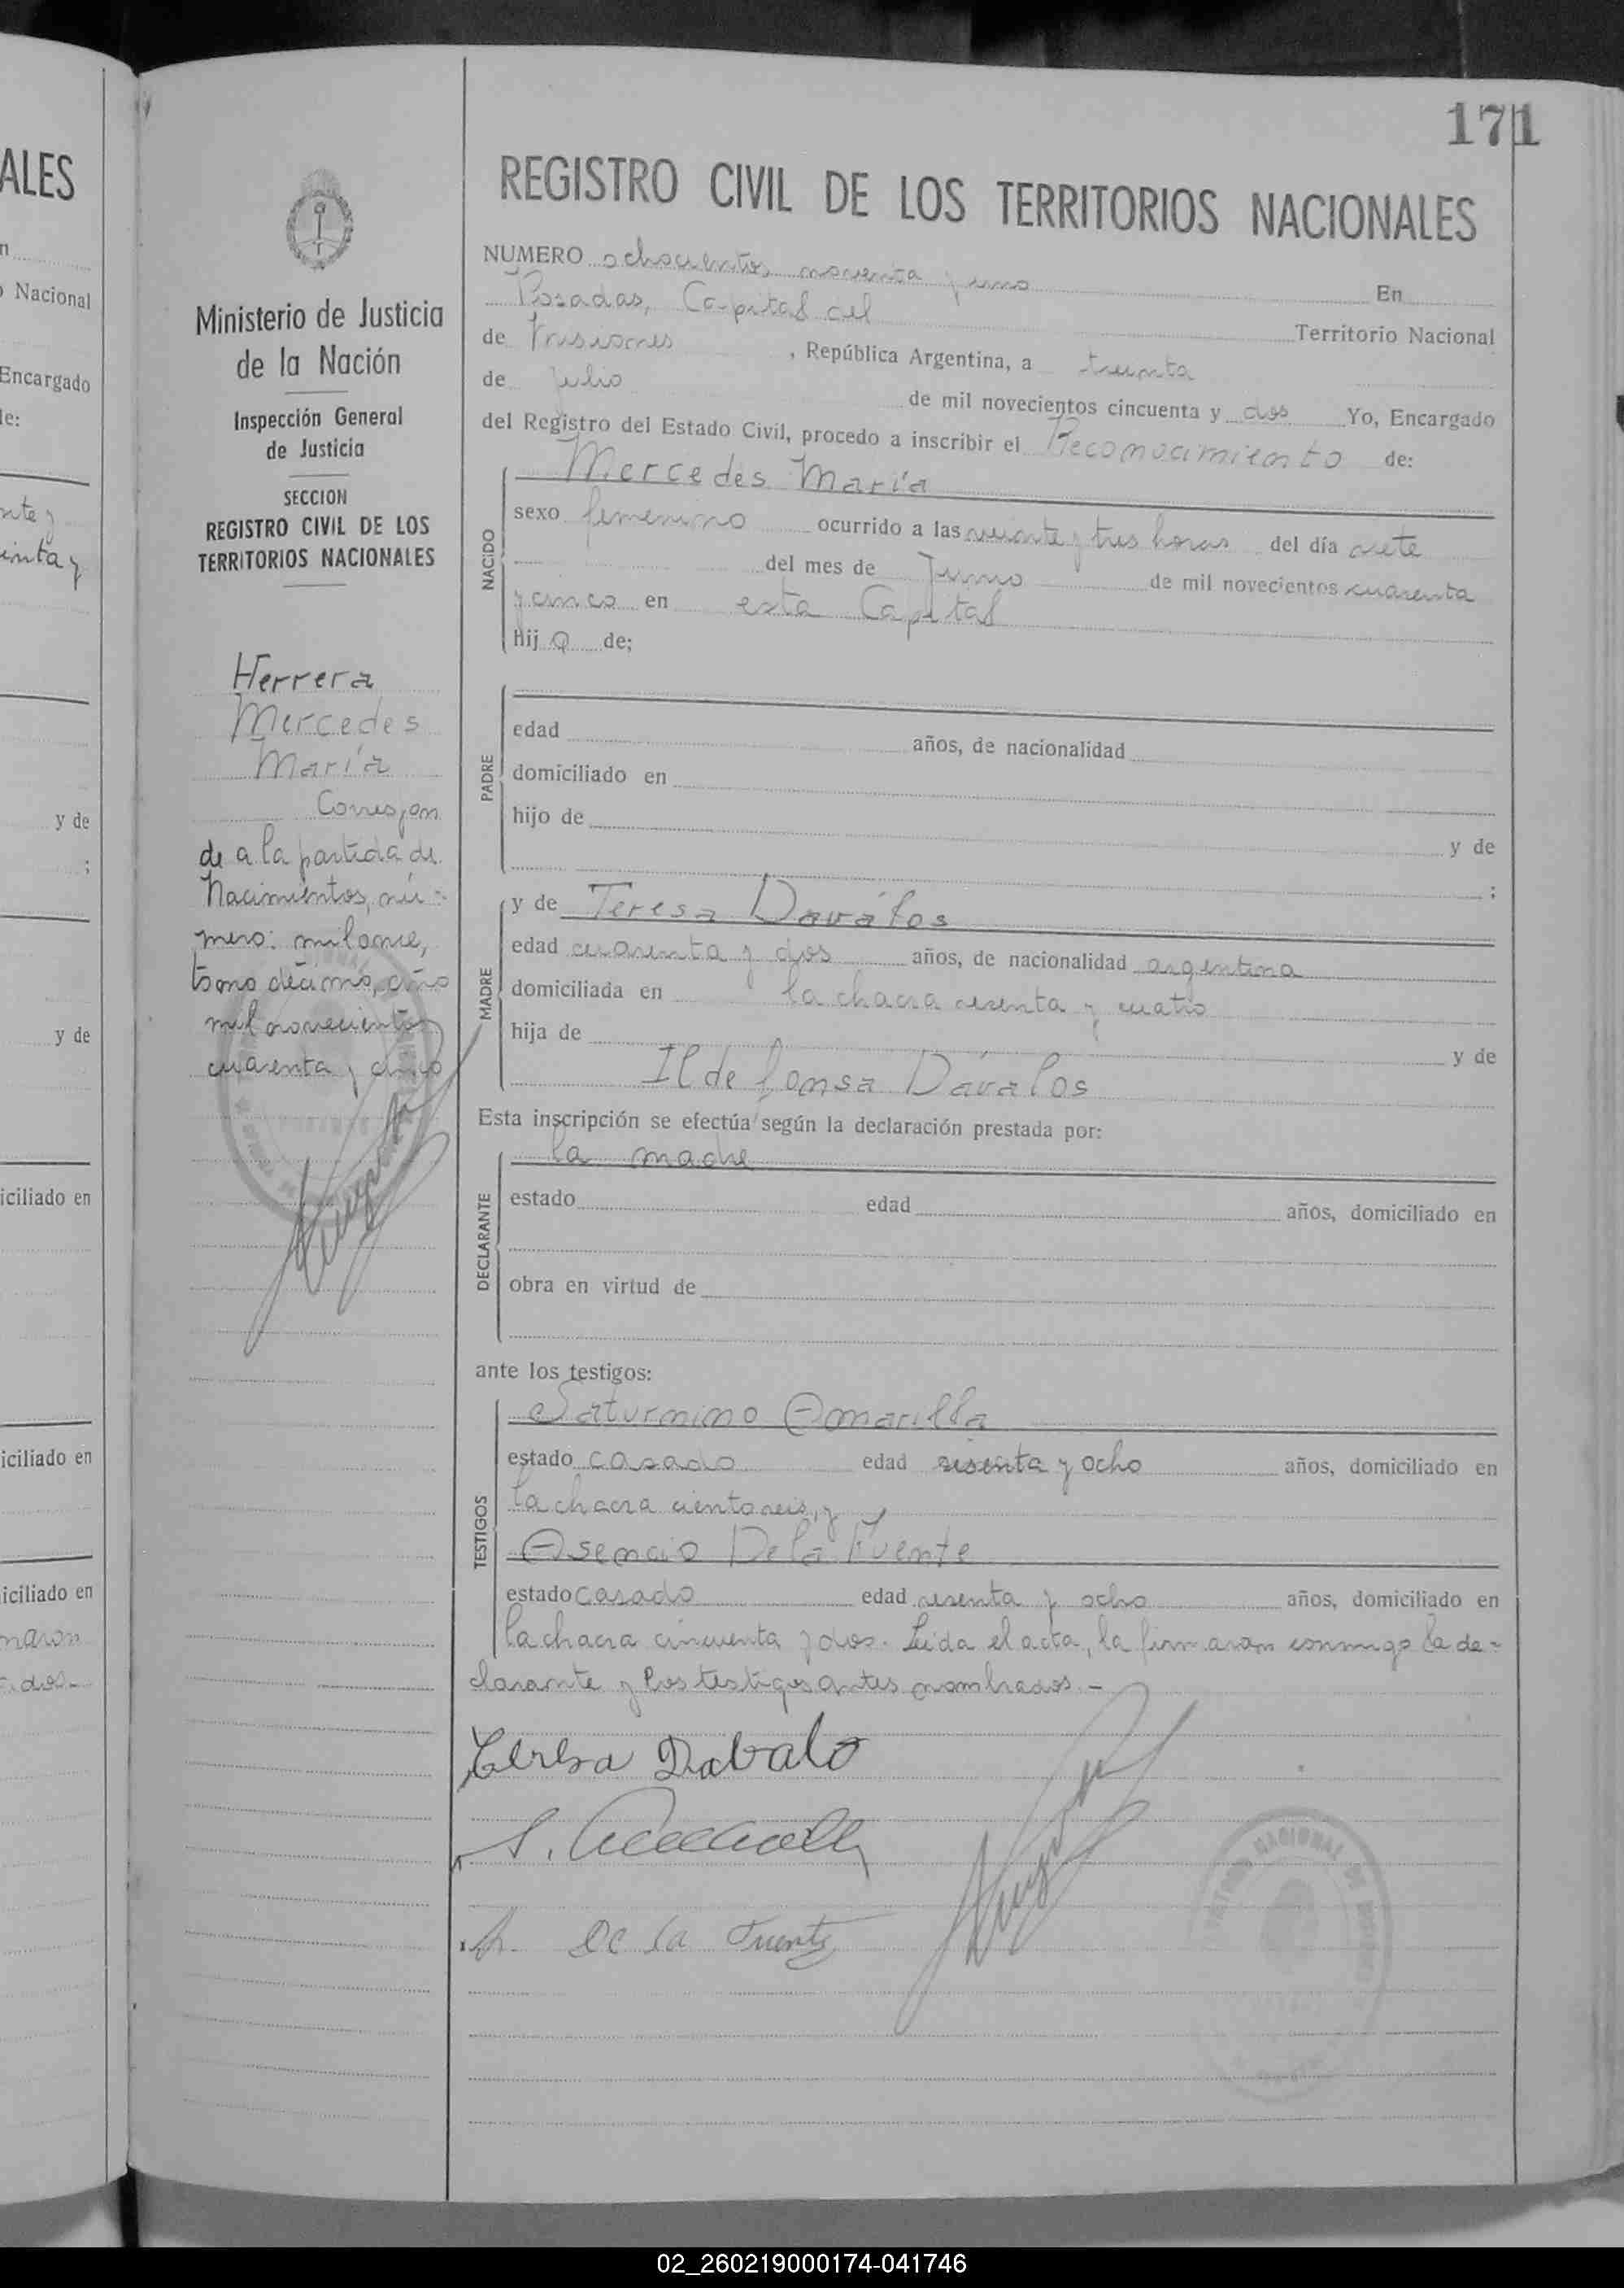 171
ALES
n
o Nacional
Encargado
de:
nte y
inta y
y de
;
y de
iciliado en
iciliado en
iciliado en
maron
dos.-
Ministerio de Justicia
de la Nación
Inspección General
de Justicia
SECCION
REGISTRO CIVIL DE LOS
TERRITORIOS NACIONALES
Herrera
Mercedes
María
Correspon
de a la partida de
Nacimientos, nú-
mero: mil once,
tomo décimo, año
mil novecientos
cuarenta y cinco
REGISTRO CIVIL DE LOS TERRITORIOS NACIONALES
NUMERO ochocientos noventa y uno En
Posadas, Capital del Territorio Nacional
de Misiones, República Argentina, a treinta
de Julio de mil novecientos cincuenta y dos Yo, Encargado
del Registro del Estado Civil, procedo a inscribir el Reconocimiento de:
NACIDO
Mercedes María
sexo femenino ocurrido a las veinte y tres horas del día siete
del mes de Junio de mil novecientos cuarenta
y cinco en esta Capital
hij a de;
PADRE
edad años, de nacionalidad
domiciliado en
hijo de y de
;
MADRE
y de Teresa Daválos
edad cuarenta y dos años, de nacionalidad argentina
domiciliada en la chacra sesenta y cuatro
hija de y de
Ildefonsa Dávalos
Esta inscripción se efectúa según la declaración prestada por:
DECLARANTE
la madre
estado edad años, domiciliado en
obra en virtud de
ante los testigos:
TESTIGOS
Saturnino Amarilla
estado casado edad sesenta y ocho años, domiciliado en
la chacra ciento seis, y
Asencio De la Fuente
estado casado edad sesenta y ocho años, domiciliado en
la chacra cincuenta y dos. Leida el acta, la firmaron conmigo la de-
clarante y los testigos antes nombrados.-
Teresa Dabalo
S. Amarilla
A. De la Fuente
02_260219000174-041746